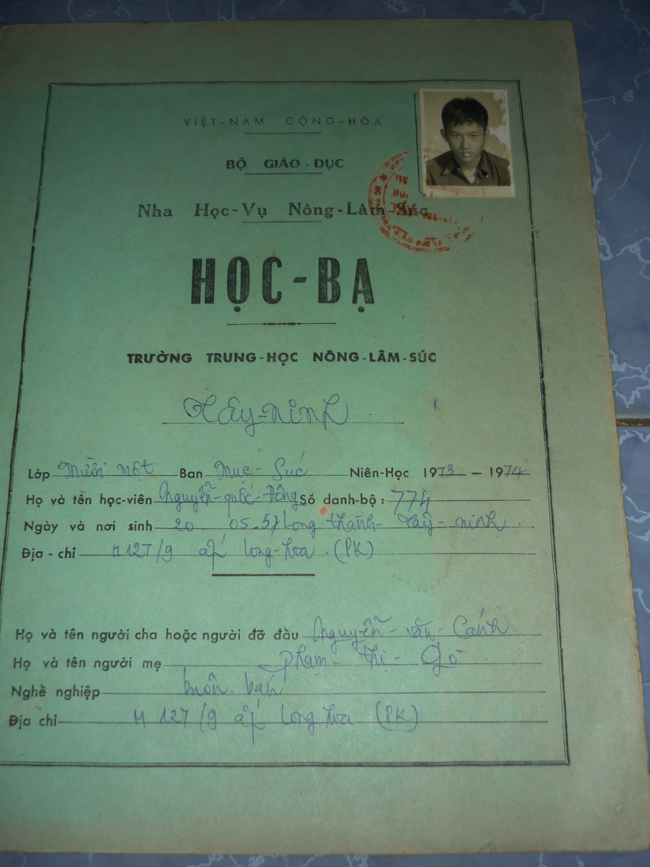 VIỆT-NAM CỘNG-HÒA
BỘ GIÁO-DỤC
Nha Học-Vụ Nông-Lâm-Súc
HỌC-BẠ
TRƯỜNG TRUNG-HỌC NÔNG-LÂM-SÚC
Tây-ninh
Lớp Mười Một Ban Mục-Súc Niên-Học 1973 - 1974
Họ và tên học-viên Nguyễn-quốc-Đông Số danh-bộ: 774
Ngày và nơi sinh 20-05-57 Long thành-Tây-ninh
Địa-chỉ M127/9 ấp long-hoa (PK)
Họ và tên người cha hoặc người đỡ đầu Nguyễn-văn-Cảnh
Họ và tên người mẹ phạm-thị-Gò
Nghề nghiệp buôn bán
Địa chỉ M127/9 ấp long hoa (PK)